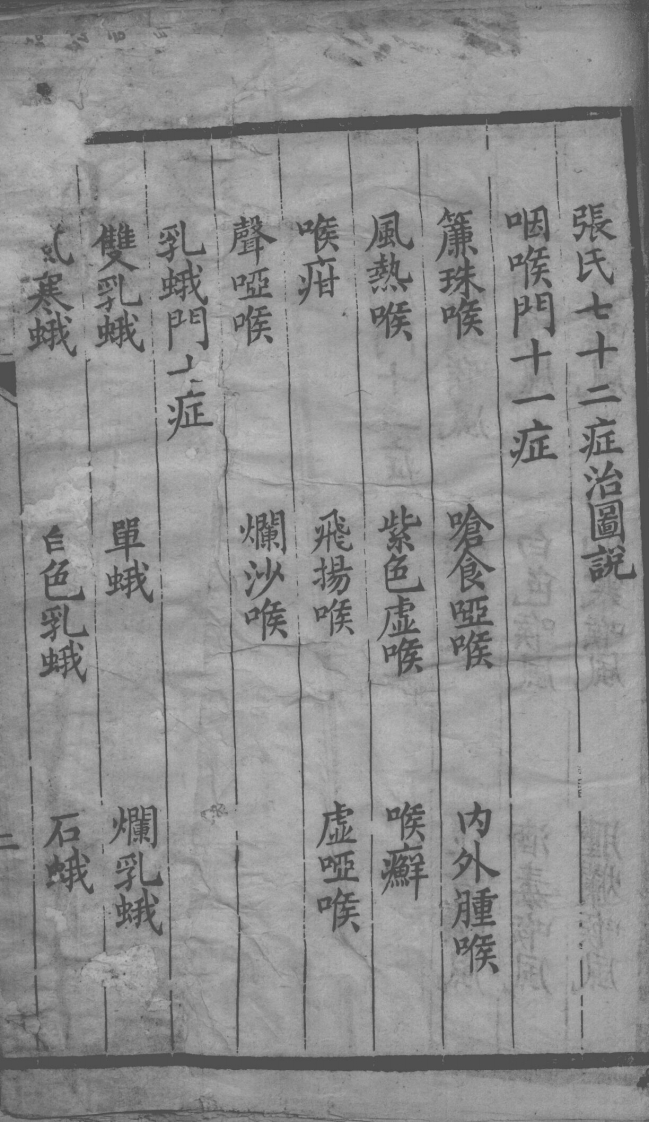 張氏七十二症治圖説
咽喉門十一症
簾珠喉 嗆食啞喉 内外腫喉
風熱喉 紫色虚喉 喉癬
喉疳 飛揚喉 虚啞喉
聲啞喉 爛沙喉
乳蛾門 症
雙乳蛾 單蛾 爛乳蛾
寒蛾 白色乳蛾 石蛾
二